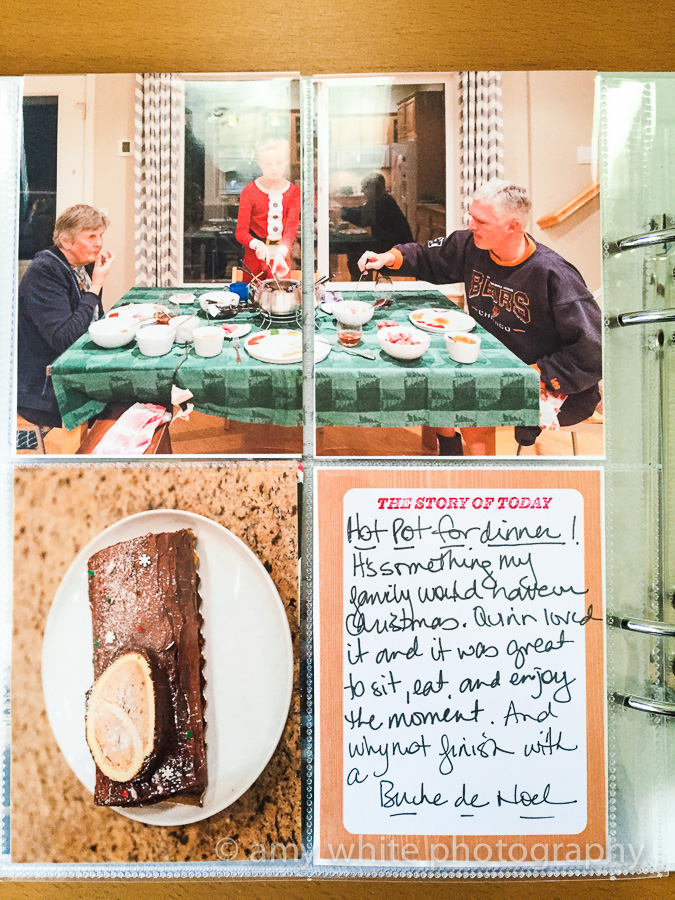 BEARS
CHICAGO
THE STORY OF TODAY
Hot Pot for dinner!
It's something my
family would have on
Christmas. Quinn loved
it and it was great
to sit, eat, and enjoy
the moment. And
why not finish with
a
Buche de Noel
© amy white photography